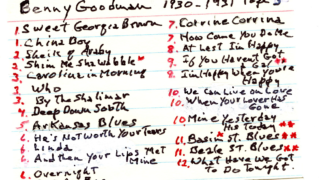 Benny Goodman 1930-1931 Tape 3
1. Sweet Georgia Brown
1. China Boy
2. Sheik of Araby
2. Shim Me Sha Wabble *
3. Carolina in Morning
3. Who
3. By the Shalimar
4. Deep Down South
5. Arkansas Blues
6. He's Not Worth Your Tears
6. Linda
6. And then Your Lips Met Mine
6. Overnight
7. Corrine Corrina
7. How Come You Do Me
8. At Last I'm Happy
9. If You Haven't Got a Gal **
9. I'm Happy When You're Happy
10. We Can Live on Love
10. When Your Lover Has Gone
10. Mine Yesterday His Today **
11. Basin St. Blues **
11. Beale St. Blues **
12. What Have We Got To Do Tonight.